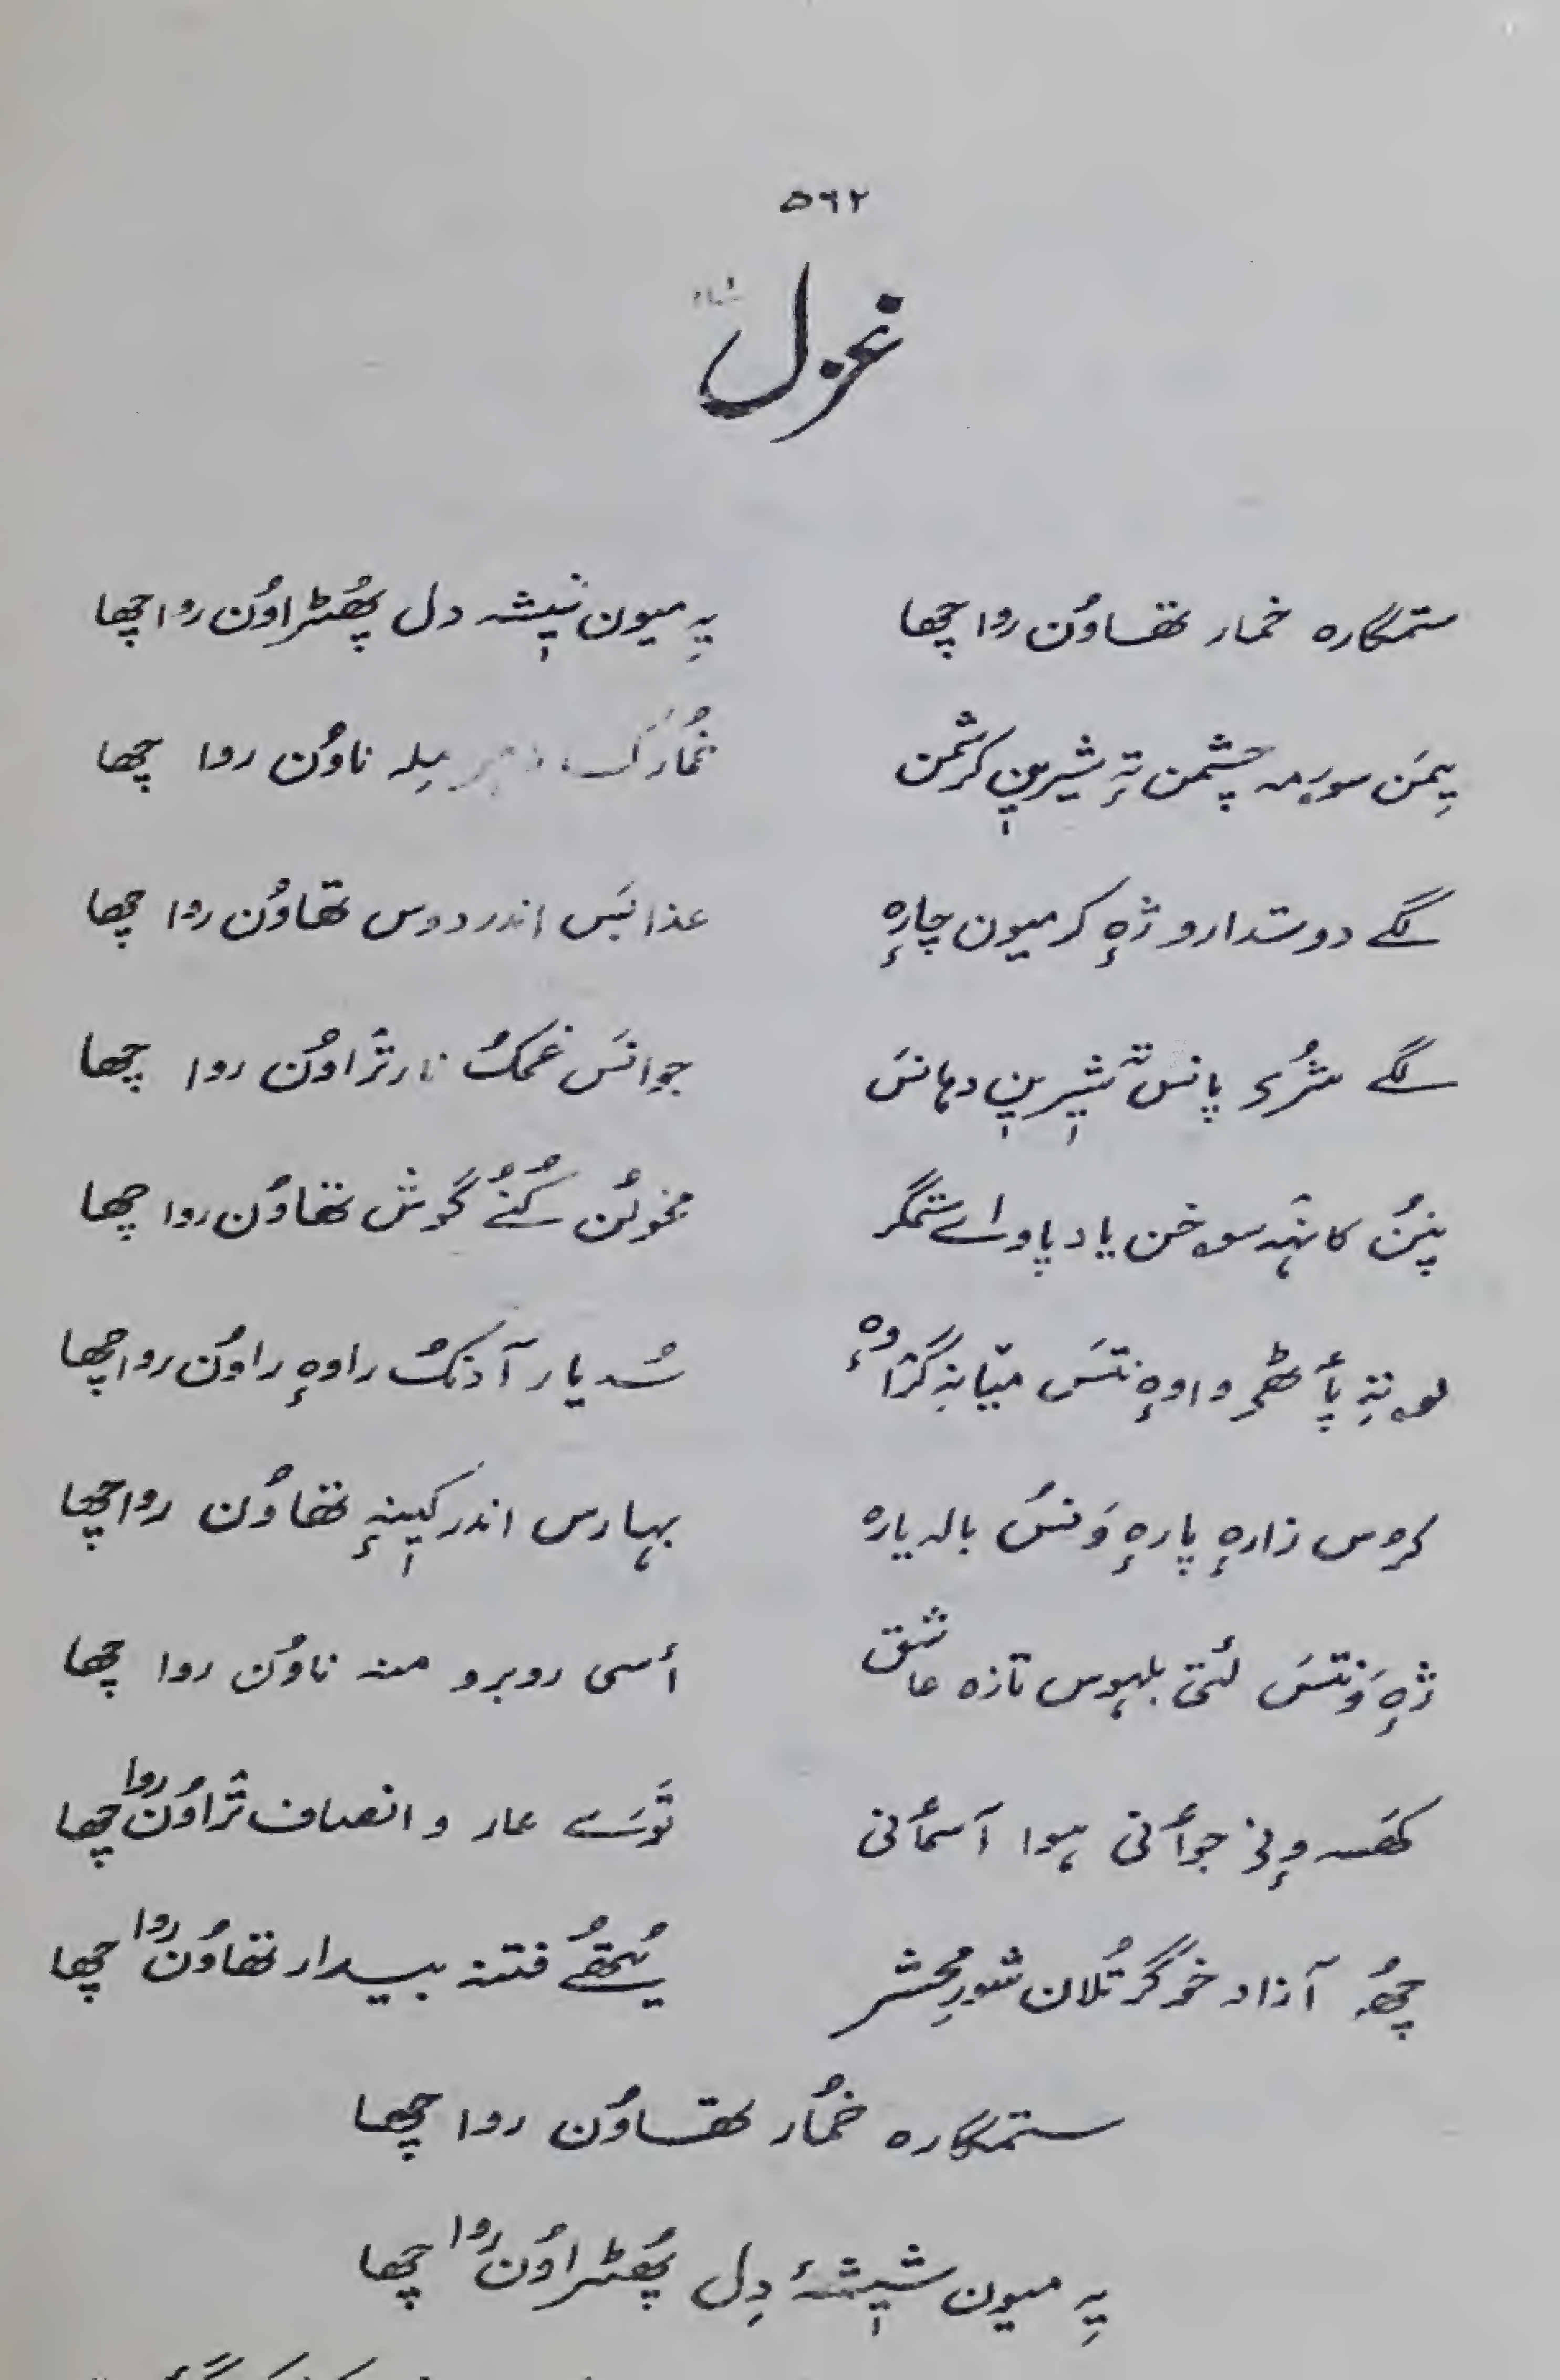 ۵۶۲
غزل
ستمگارہ خمار تھاوُن روا چھا یہِ میون شیٖشہ دل پھُٹراوُن روا چھا
یِمَن سورمہ چشمن تہٕ شیریٖن کرشمن خمارُک میلہ ناوُن روا چھا
گے دوستدارو ژہٕ کر میون چارہٕ عذابَس اندر دوس تھاوُن روا چھا
گے شیٖریٖن دہانَس جوانَس غمُک نار ژاوُن روا چھا
پنُن کانہہ سوخن یاد پاو اے ستمگر گوش تھاوُن روا چھا
سُہ یار آدنُک راوہٕ راوُن روا چھا
کروس زارہٕ پارہٕ وَنسُ بالہ یارہ بہارس اندر کیٖنہٕ تھاوُن روا چھا
ژہٕ وَنتَس لُتی بلہوس تازہ عاشق أسی روبرو منہ ناوُن روا چھا
جوأنی ہوا آسمأنی توسَے عار و انصاف ژاوُن روا چھا
چھُ آزاد خوگر تُلان شورِ محشر یُتھُے فتنہ بیدار تھاوُن روا چھا
ستمگارہ خمُار تھاوُن روا چھا
یہِ میون شیٖشۂ دِل پھُٹراوُن روا چھا